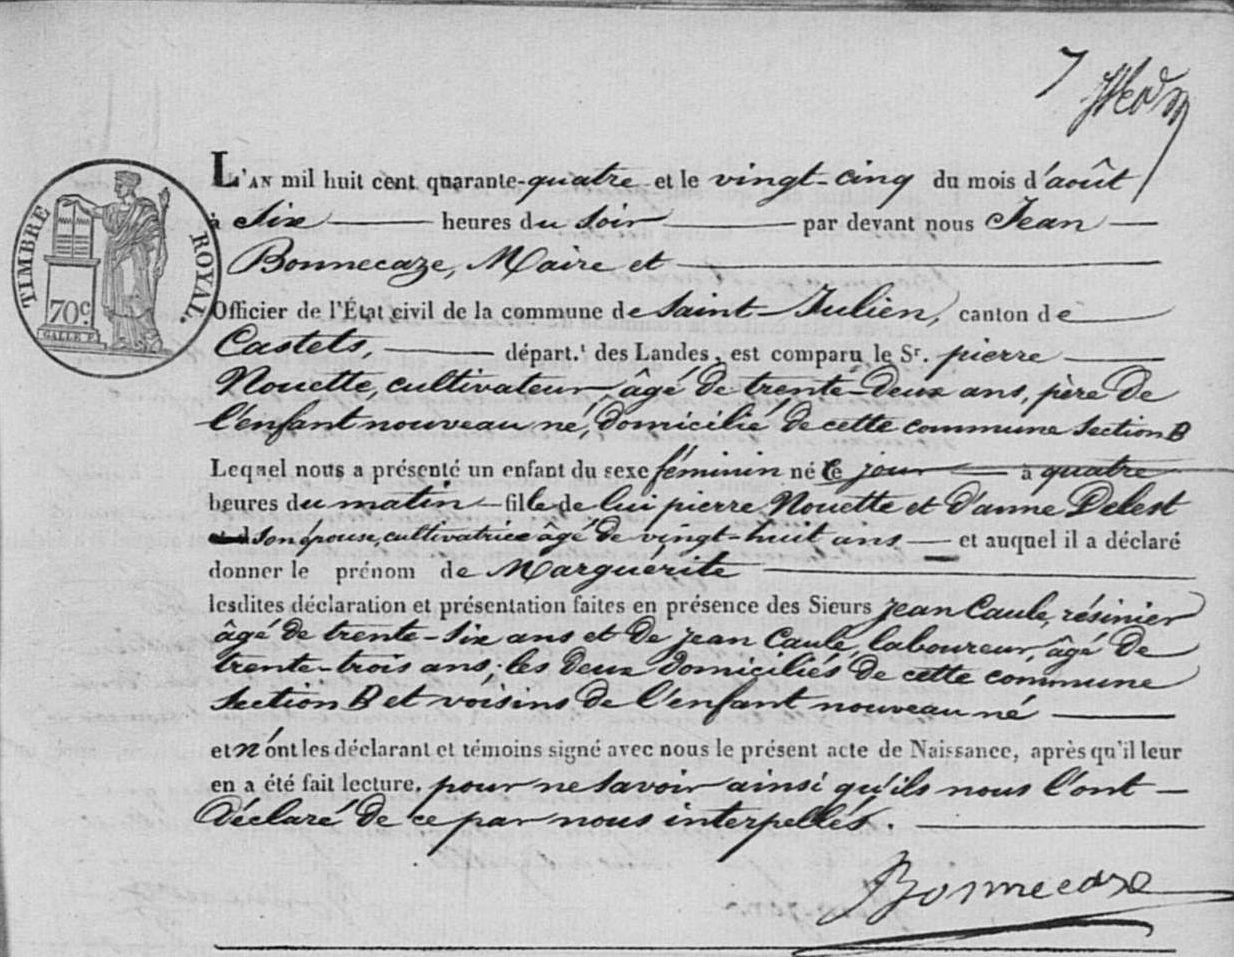 7
TIMBRE ROYAL.
70c.
GALLE F.
L'AN mil huit cent quarante-quatre et le vingt-cinq du mois d'août
à six heures du soir par devant nous Jean
Bonnecaze, Maire et
Officier de l'État civil de la commune de Saint-Julien, canton de
Castets, départ.t des Landes, est comparu le Sr. pierre
Nouette, cultivateur, âgé de trente-deux ans, père de
l'enfant nouveau né, domicilié de cette commune section B
Lequel nous a présenté un enfant du sexe féminin né ce jour à quatre
heures du matin fille de lui pierre Nouette et d'anne Delest
son épouse, cultivatrice âgé de vingt-huit ans et auquel il a déclaré
donner le prénom de Marguerite
lesdites déclaration et présentation faites en présence des Sieurs jean Caule, résinier
âgé de trente-six ans et de jean Caule, laboureur, âgé de
trente-trois ans; les deux domiciliés de cette commune
section B et voisins de l'enfant nouveau né
et n'ont les déclarant et témoins signé avec nous le présent acte de Naissance, après qu'il leur
en a été fait lecture, pour ne savoir ainsi qu'ils nous l'ont
déclaré de ce par nous interpellés.
Bonnecaze